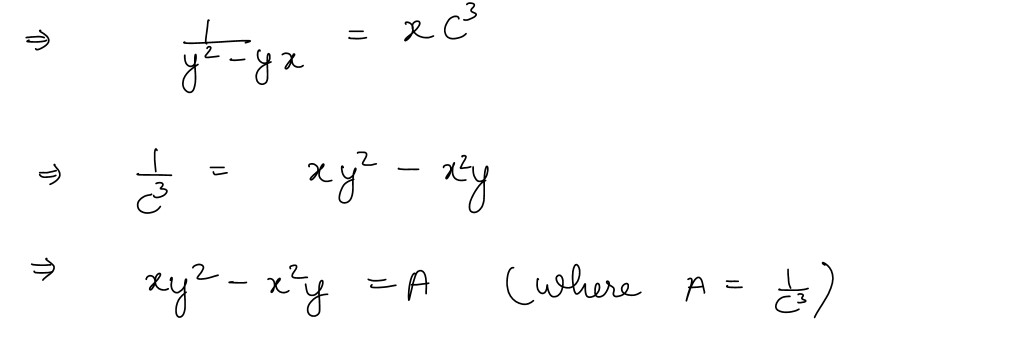 ⇒ 1/(y² - yx) = x C³
⇒ 1/C³ = xy² - x²y
⇒ xy² - x²y = A (where A = 1/C³)